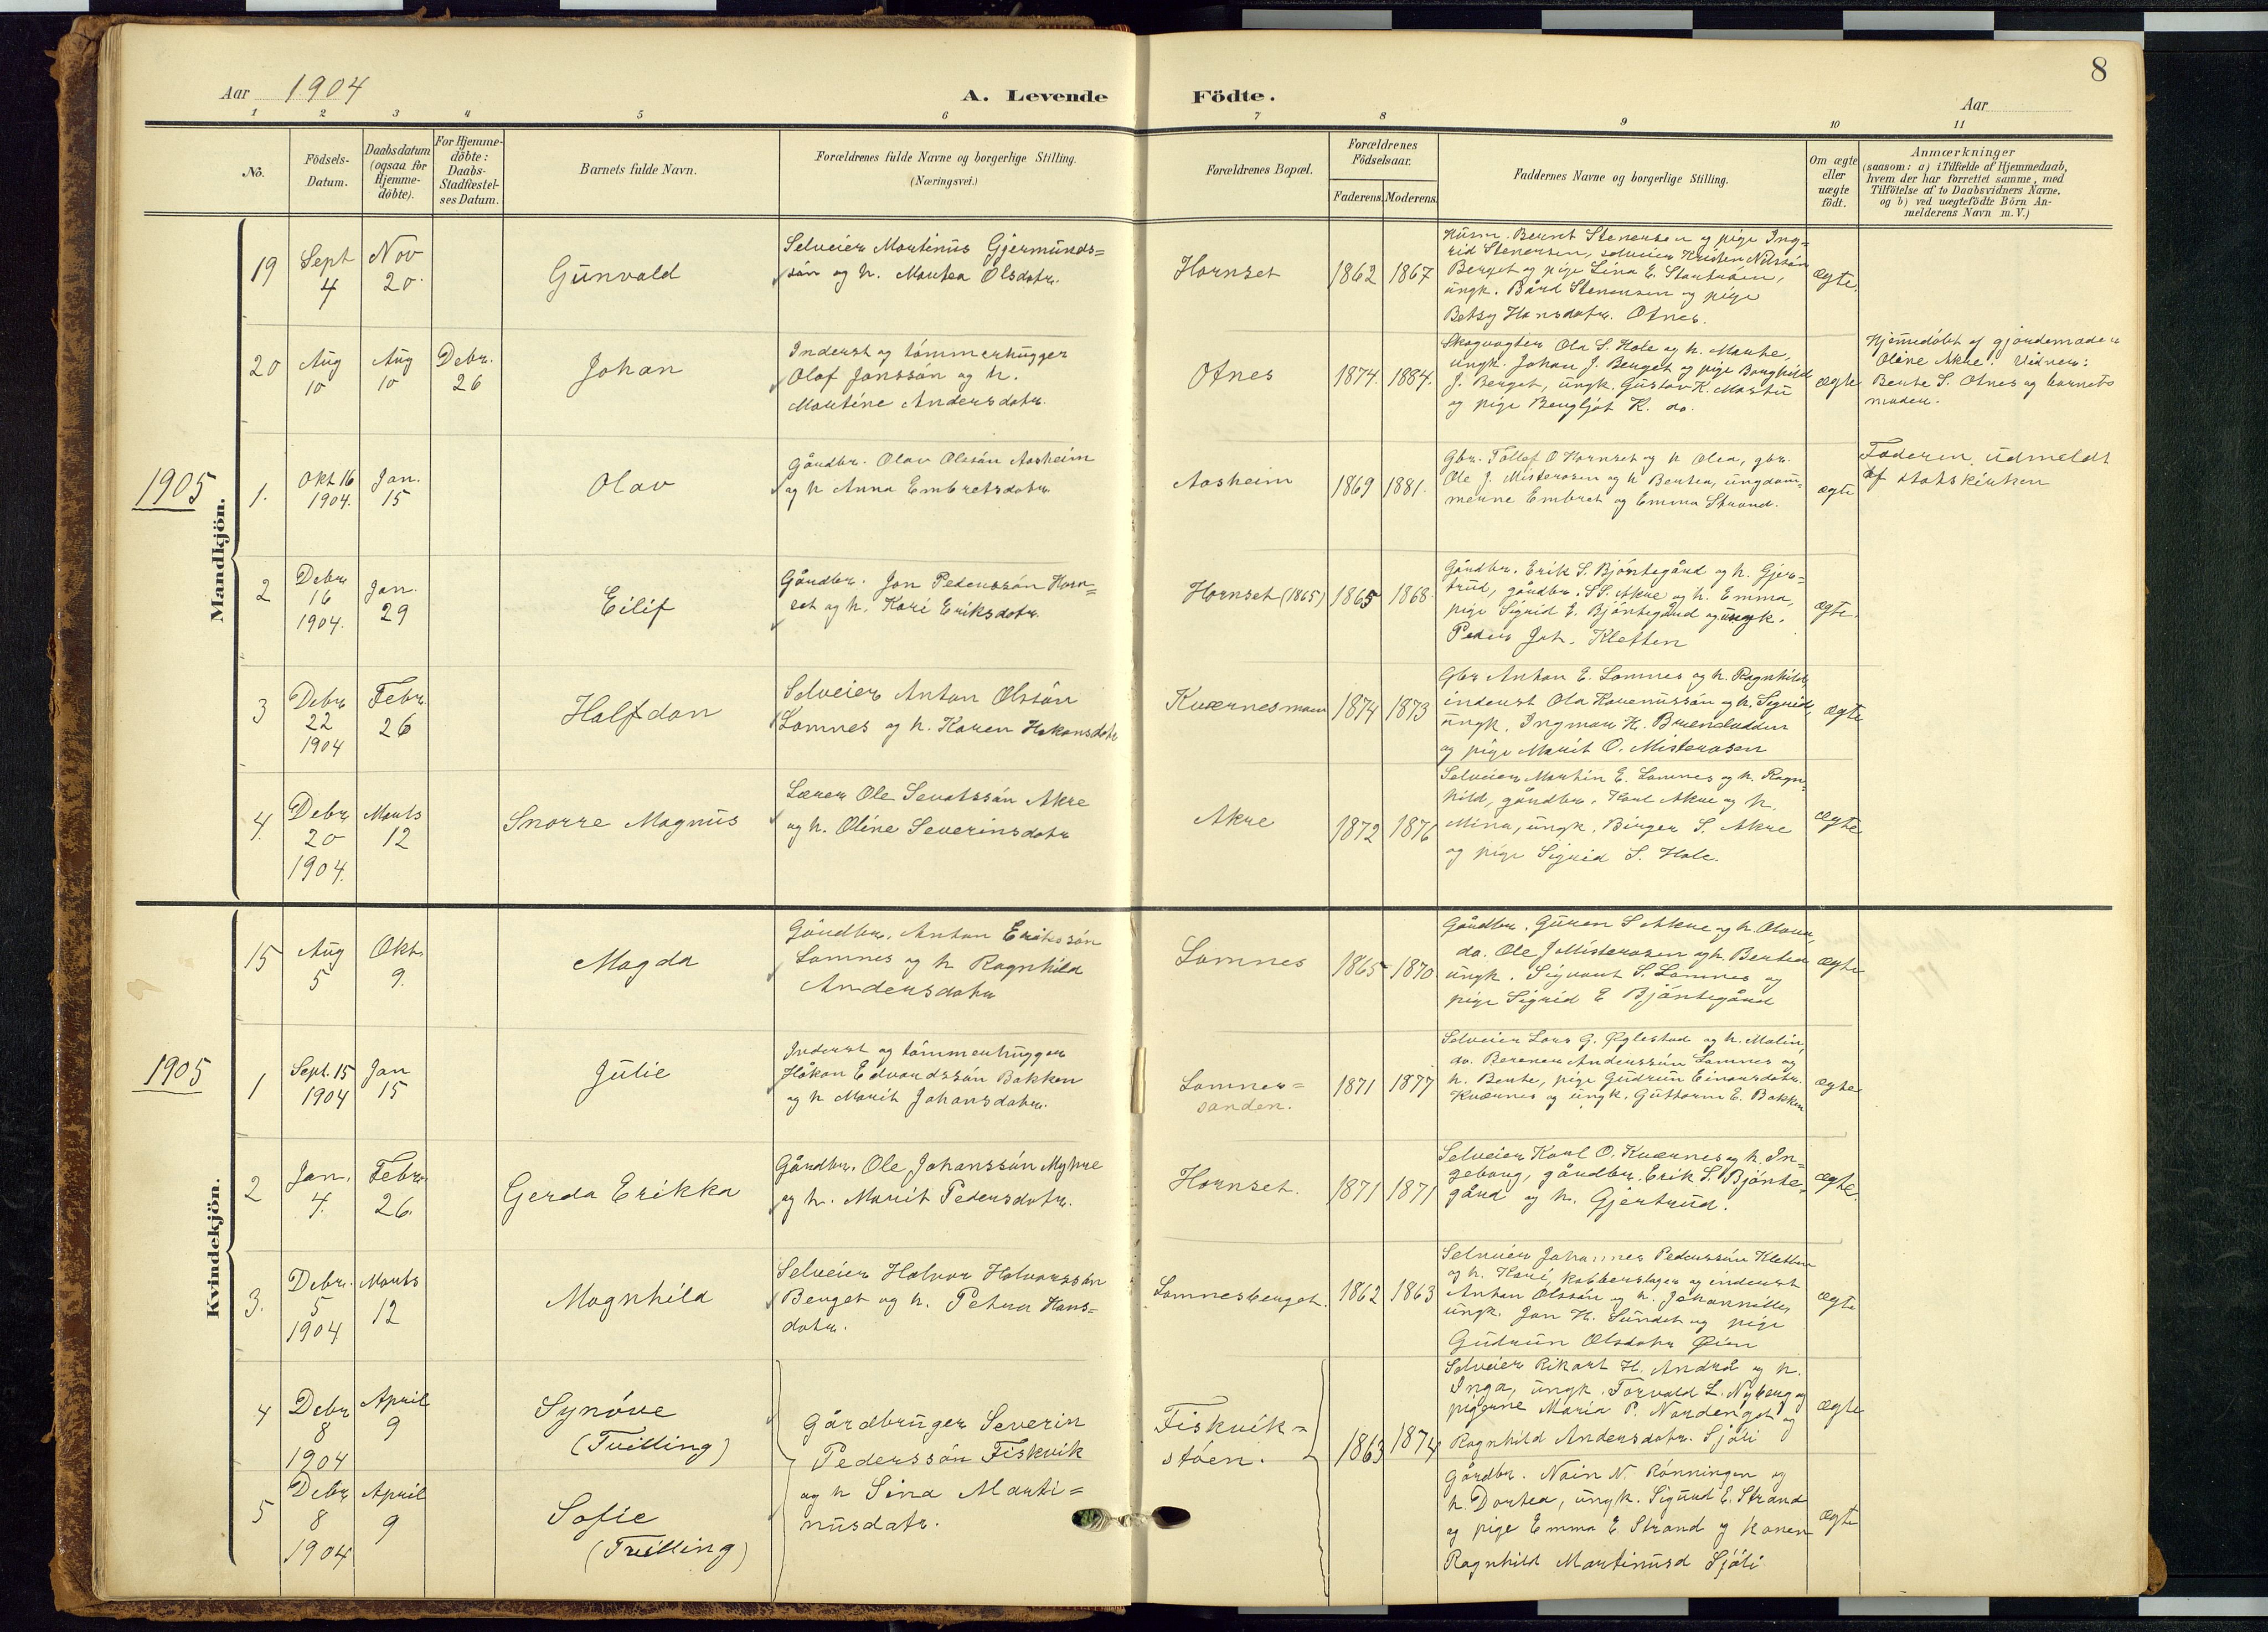 8
Aar 1904
A. Levende Födte.
Aar
1 2 3 4 5 6 7 8 9 10 11
No.
Födsels-
Datum.
Daabsdatum
(ogsaa for
Hjemme-
döbte).
For Hjemme-
döbte:
Daabs-
Stadfæstel-
ses Datum.
Barnets fulde Navn.
Forældrenes fulde Navne og borgerlige Stilling.
(Næringsvei.)
Forældrenes Bopæl.
Forældrenes
Födselsaar.
Faderens. Moderens.
Faddernes Navne og borgerlige Stilling.
Om ægte
eller
uægte
födt.
Anmærkninger
(saasom: a) i Tilfælde af Hjemmedaab,
hvem der har forrettet samme, med
Tilföielse af to Daabsvidners Navne,
og b) ved uægtefödte Börn An-
melderens Navn m. V.)
Mandkjön.
19
Sept
4
Nov
20.
Gunvald
Selveier Martinus Gjermunds=
søn og h. Martea Olsdatr.
Hornset
1862 1867
Husm. Bernt Stenersen og pige Ing=
rid Stenersen, selveier Kristen Nilsson
Berget og pige Lina E.
ungk. Bård Stenersen og pige
Betsy Hansdatr. Otnes.
ægte.
20
Aug
10
Aug
10
Debr.
26
Johan
Inderst og tømmerhugger
Olof Jonssøn og h.
Martine Andersdatr.
Otnes
1874. 1884.
Skogvogter Ola S. Hole og h. Marthe,
ungk. Johan J. Berget og pige Borghild
J. Berget, ungk. Gustav K. Mostu
og pige Bergljot K. do.
ægte
Hjemmedøbt af gjordemoder
Oline Akre. Vidner:
Berte S. Otnes og barnets
moder.
1905
1.
Okt 16
1904.
Jan.
15
Olav
Gårdbr. Olav Olssøn Aasheim
og h Anna Embretsdatr.
Aasheim
1869 1881.
Gbr. Tollef O Hornset og h Olea, gbr.
Ole J. Misterosen og h Bertea, ungdom=
mene Embret og Emma Strand.
ægte
Faderen udmeldt
af statskirken
2
Debr
16
1904.
Jan.
29
Eilif
Gårdbr. Jon Pederssøn Horn=
set og h. Kari Eriksdatr.
Hornset (1865)
1865 1868.
Gårdbr. Erik S. Bjøntegård og h. Gjer=
trud, gårdbr. S.S. Akre og h. Emma,
pige Sigrid E. Bjøntegård og ungk.
Peder Joh. Kletten
ægte.
3
Debr
22
1904
Febr.
26
Halfdan
Selveier Anton Olssøn
Lomnes og h. Karen Hokansdatr
Kværnesmoen
1874 1873
Gbr Anton E. Lomnes og h. Ragnhild,
inderst Ola Havenussøn og h. Sigrid,
ungk. Ingman H. Brændodden
og pige Marit O. Misterosen
ægte
4.
Debr
20
1904.
Marts
12
Snorre Magnus
Lærer Ole Sevatssøn Akre
og h. Oline Severinsdatr
Akre
1872 1876
Selveier Martin E. Lomnes og h. Ragn=
hild, gårdbr. Karl Akre og h.
Mina, ungk. Birger S. Akre
og pige Sigrid S. Hole.
ægte
Kvindekjön.
15
Aug
5
Okt.
9.
Magda
Gårdbr. Anton Erikssøn
Lomnes og h Ragnhild
Andersdatr
Lomnes
1865 1870
Gårdbr. Guren S Akre og h. Olava,
do. Ole J Misterosen og h. Bertea
ungk. Sigvart S. Lomnes og
pige Sigrid E Bjøntegård
ægte
1905
1
Sept. 15
1904
Jan
15
Julie
Inderst og tømmerhugger
Håkon Edvardssøn Bakken
og h Marit Johansdatr.
Lomnes=
sanden.
1871 1877
Selveier Lars G. Øglestad og h. Malin,
do. Berener Anderssøn Lomnes og
h. Berte, pige Gudrun Einarsdatr.
Kværnes og ungk. Guttorm E. Bakken
ægte
2
Jan.
4.
Febr.
26.
Gerda Erikka
Gårdbr. Ole Johanssøn Myhre
og h. Marit Pedersdatr.
Hornset.
1871 1871
Selveier Karl O. Kværnes og h. In=
geborg, gårdbr. Erik S. Bjønte=
gård og h. Gjertrud.
ægte.
3.
Debr.
5
1904
Marts
12
Magnhild
Selveier Halvor Halvorssøn
Berget og h. Petra Hans=
datr.
Lomnesberget.
1862 1863
Selveier Johannes Pederssøn Kletten
og h. Kari, kobberslager og inderst
Anton Olssøn og h. Johannette,
ungk. Jon H. Sundet og pige
Gudrun Olsdatr Øien
ægte
4
Debr
8
1904
April
9
Synøve
(Tvilling)
Gårdbruger Severin
Pederssøn Fiskvik
og h Sina Marti=
nusdatr.
Fiskvik=
støen.
1863 1874
Selveier Rikart H. Andrå og h.
Inga, ungk. Torvald L. Nyberg og
pigerne Maria P. Nordenget og
Ragnhild Andersdatr. Sjøli
ægte
5
Debr
8
1904
April
9
Sofie
(Tvilling)
Gårdbr. Nain N. Rønningen og
h. Dortea, ungk. Sigurd E. Strand
og pige Emma E Strand og konen
Ragnhild Martinusd Sjøli
ægte